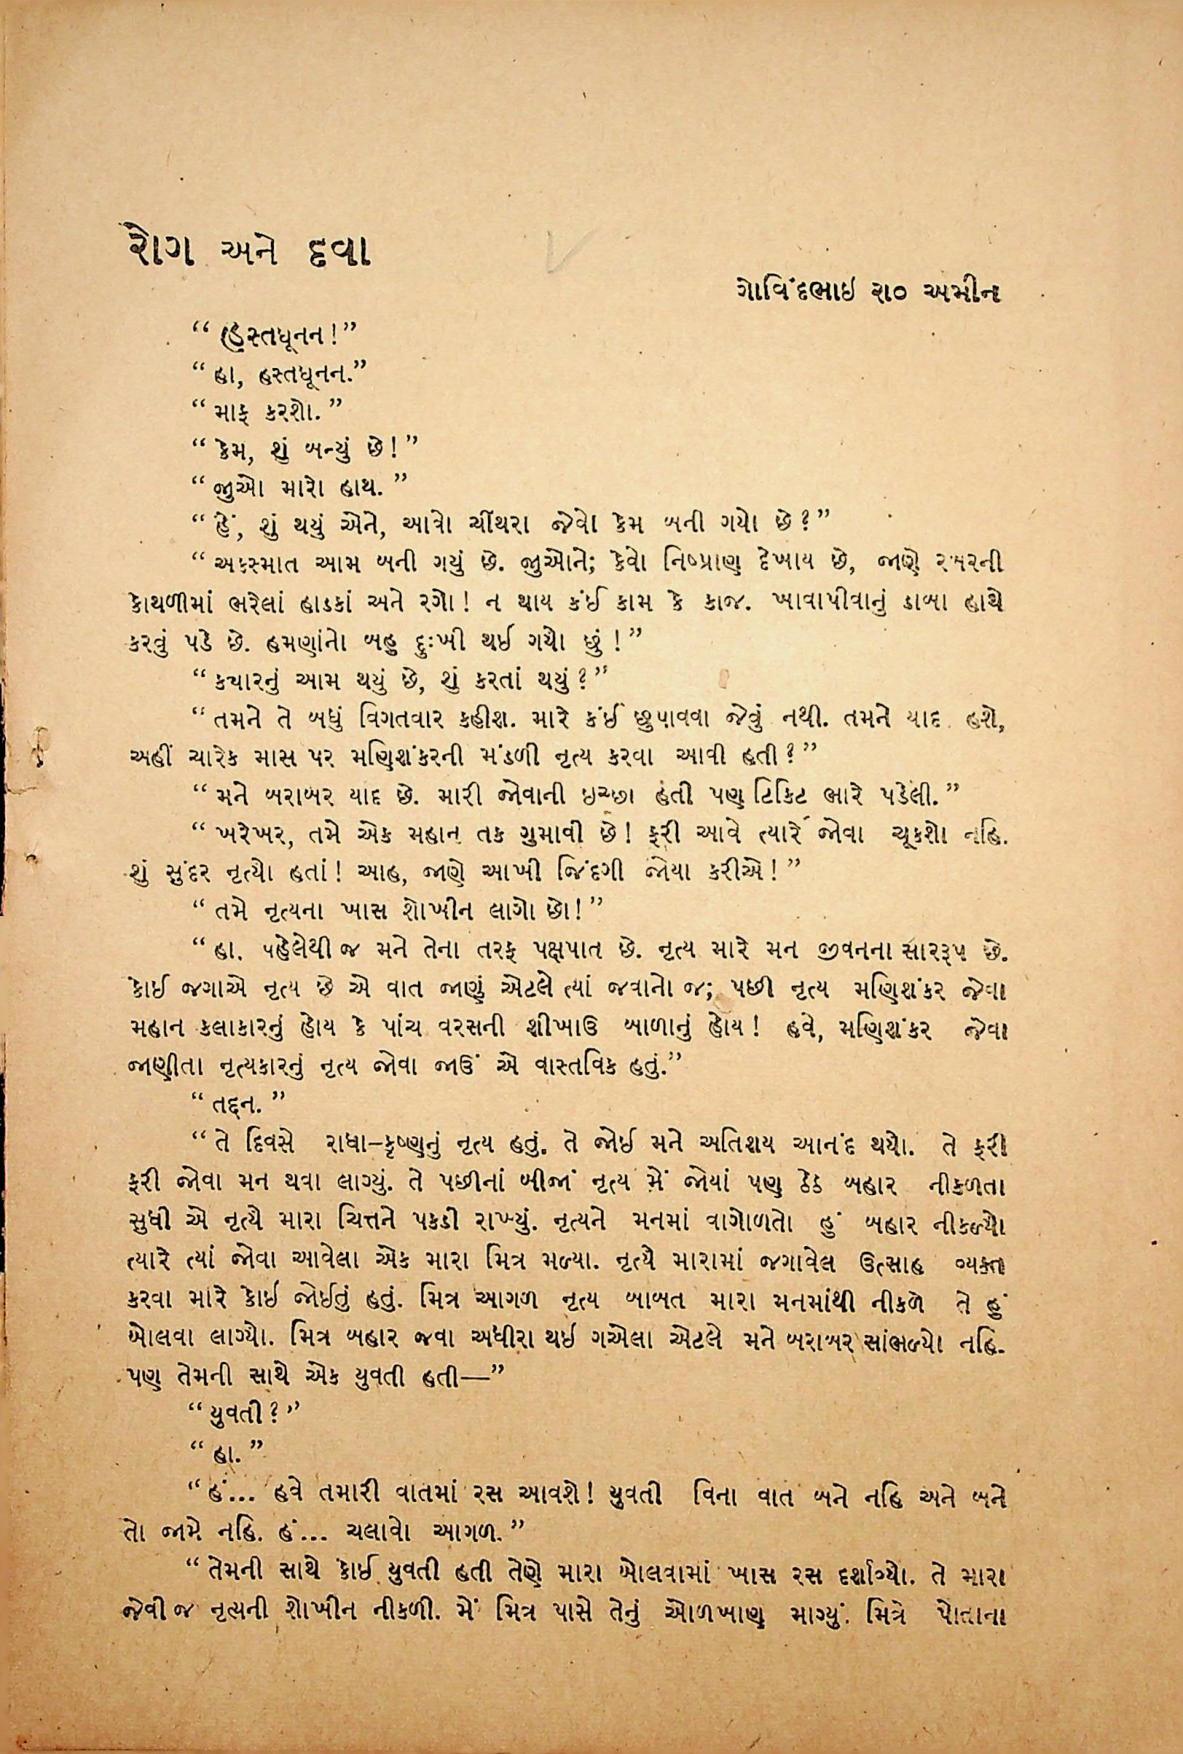 રોગ અને દવા
ગોવિંદભાઇ રા૦ અમીન
“ હસ્તધૂનન!”
“ હા, હસ્તધૂનન.”
“ માફ કરશો. ”
“ કેમ, શું બન્યું છે! ”
“ જુઓ મારો હાથ. ”
“ હેં, શું થયું એને, આવો ચીંથરા જેવો કેમ બની ગયો છે? ”
“ અકસ્માત આમ બની ગયું છે. જુઓને; કેવો નિષ્પ્રાણ દેખાય છે, જાણે રબરની
કોથળીમાં ભરેલાં હાડકાં અને રગો! ન થાય કંઈ કામ કે કાજ. ખાવાપીવાનું ડાબા હાથે
કરવું પડે છે. હમણાંનો બહુ દુઃખી થઈ ગયો છું ! ”
“ કયારનું આમ થયું છે, શું કરતાં થયું? ”
“ તમને તે બધું વિગતવાર કહીશ. મારે કંઈ છુપાવવા જેવું નથી. તમને યાદ હશે,
અહીં ચારેક માસ પર મણિશંકરની મંડળી નૃત્ય કરવા આવી હતી? ”
“ મને બરાબર યાદ છે. મારી જોવાની ઇચ્છા હતી પણ ટિકિટ ભારે પડેલી. ”
“ ખરેખર, તમે એક મહાન તક ગુમાવી છે! ફરી આવે ત્યારે જોવા ચૂકશો નહિ.
શું સુંદર નૃત્યો હતાં! આહ, જાણે આખી જિંદગી જોયા કરીએ! ”
“ તમે નૃત્યના ખાસ શોખીન લાગો છો! ”
“ હા. પહેલેથી જ મને તેના તરફ પક્ષપાત છે. નૃત્ય મારે મન જીવનના સારરૂપ છે.
કોઈ જગાએ નૃત્ય છે એ વાત જાણું એટલે ત્યાં જવાનો જ; પછી નૃત્ય મણિશંકર જેવા
મહાન કલાકારનું હોય કે પાંચ વરસની શીખાઉ બાળાનું હોય! હવે, મણિશંકર જેવા
જાણીતા નૃત્યકારનું નૃત્ય જોવા જાઉં એ વાસ્તવિક હતું.”
“ તદ્દન. ”
“ તે દિવસે રાધા–કૃષ્ણનું નૃત્ય હતું. તે જોઈ મને અતિશય આનંદ થયો. તે ફરી
ફરી જોવા મન થવા લાગ્યું. તે પછીનાં બીજાં નૃત્ય મેં જોયાં પણ ઠેઠ બહાર નીકળતા
સુધી એ નૃત્યે મારા ચિત્તને પકડી રાખ્યું. નૃત્યને મનમાં વાગોળતો હું બહાર નીકળ્યો
ત્યારે ત્યાં જોવા આવેલા એક મારા મિત્ર મળ્યા. નૃત્યે મારામાં જગાવેલ ઉત્સાહ વ્યક્ત
કરવા મારે કોઇ જોઈતું હતું. મિત્ર આગળ નૃત્ય બાબત મારા મનમાંથી નીકળે તે હું
બોલવા લાગ્યો. મિત્ર બહાર જવા અધીરા થઇ ગએલા એટલે મને બરાબર સાંભળ્યો નહિ.
પણ તેમની સાથે એક યુવતી હતી—”
“ યુવતી? ”
“ હા. ”
“ હં... હવે તમારી વાતમાં રસ આવશે! યુવતી વિના વાત બને નહિ અને બને
તો જામે નહિ. હં... ચલાવો આગળ. ”
“ તેમની સાથે કોઈ યુવતી હતી તેણે મારા બોલવામાં ખાસ રસ દર્શાવ્યો. તે મારા
જેવી જ નૃત્યની શોખીન નીકળી. મેં મિત્ર પાસે તેનું ઓળખાણ માગ્યું. મિત્રે પોતાના